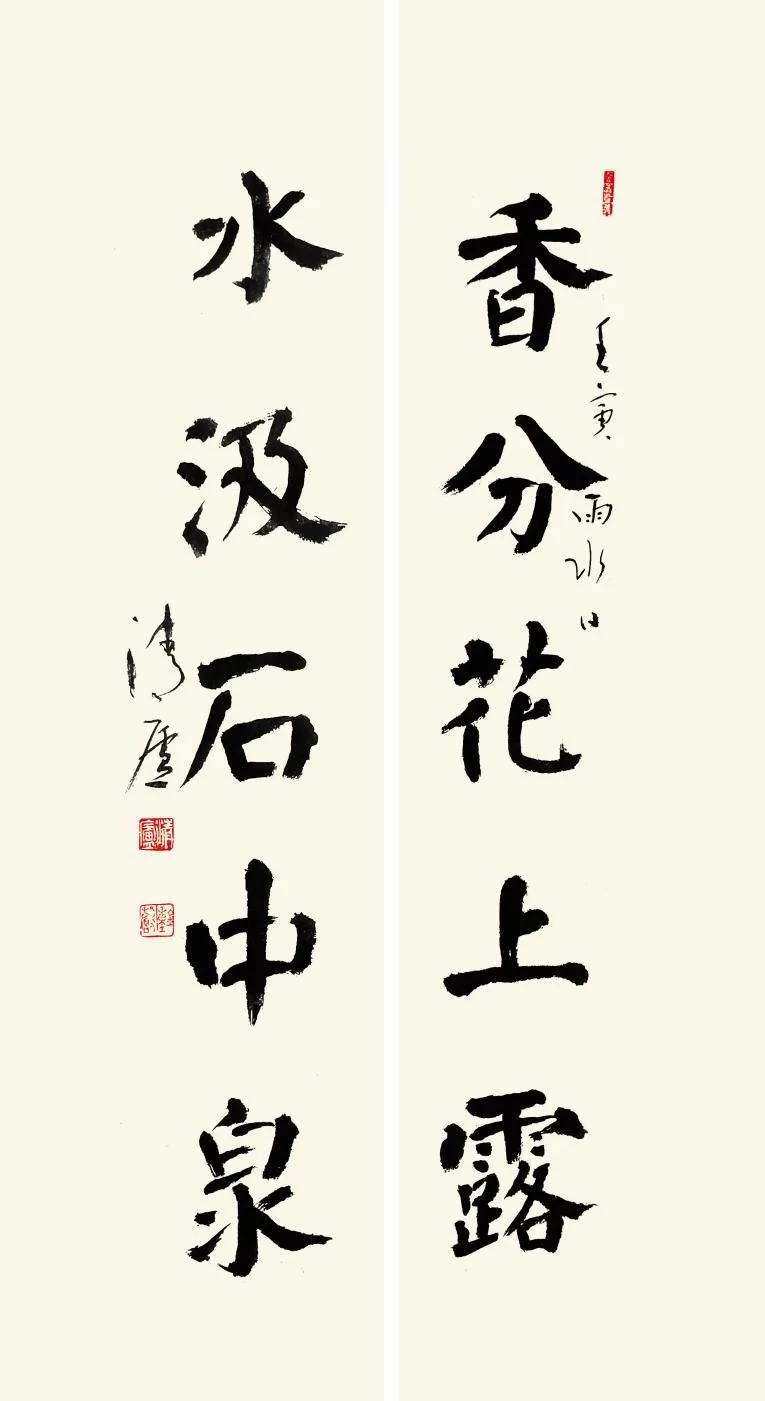 香分花上露
壬寅雨水日
水汲石中泉
清廬